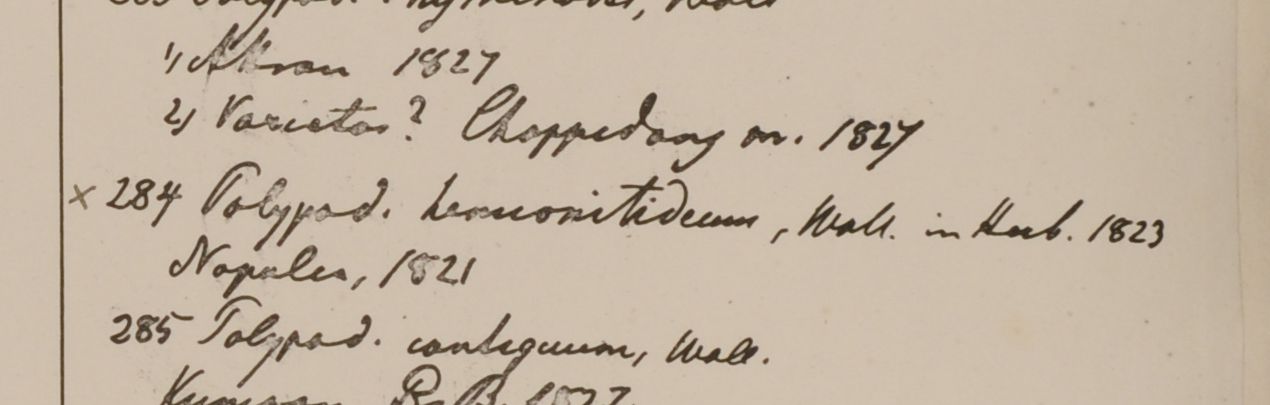 Polypod. hymenodes, Wall
1) Akran 1827
2) Varietas? Choppedong m. 1827
× 284 Polypod. hemionitideum, Wall. in Herb. 1823
Napalia, 1821
285 Polypod. contiguum, Wall.
Kumaon R. B. 1827